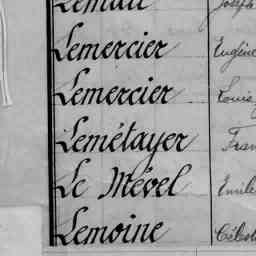 Lemercier Eugène
Lemercier Louis
Lemétayer Fran
Le Mével Emile
Lemoine Célest